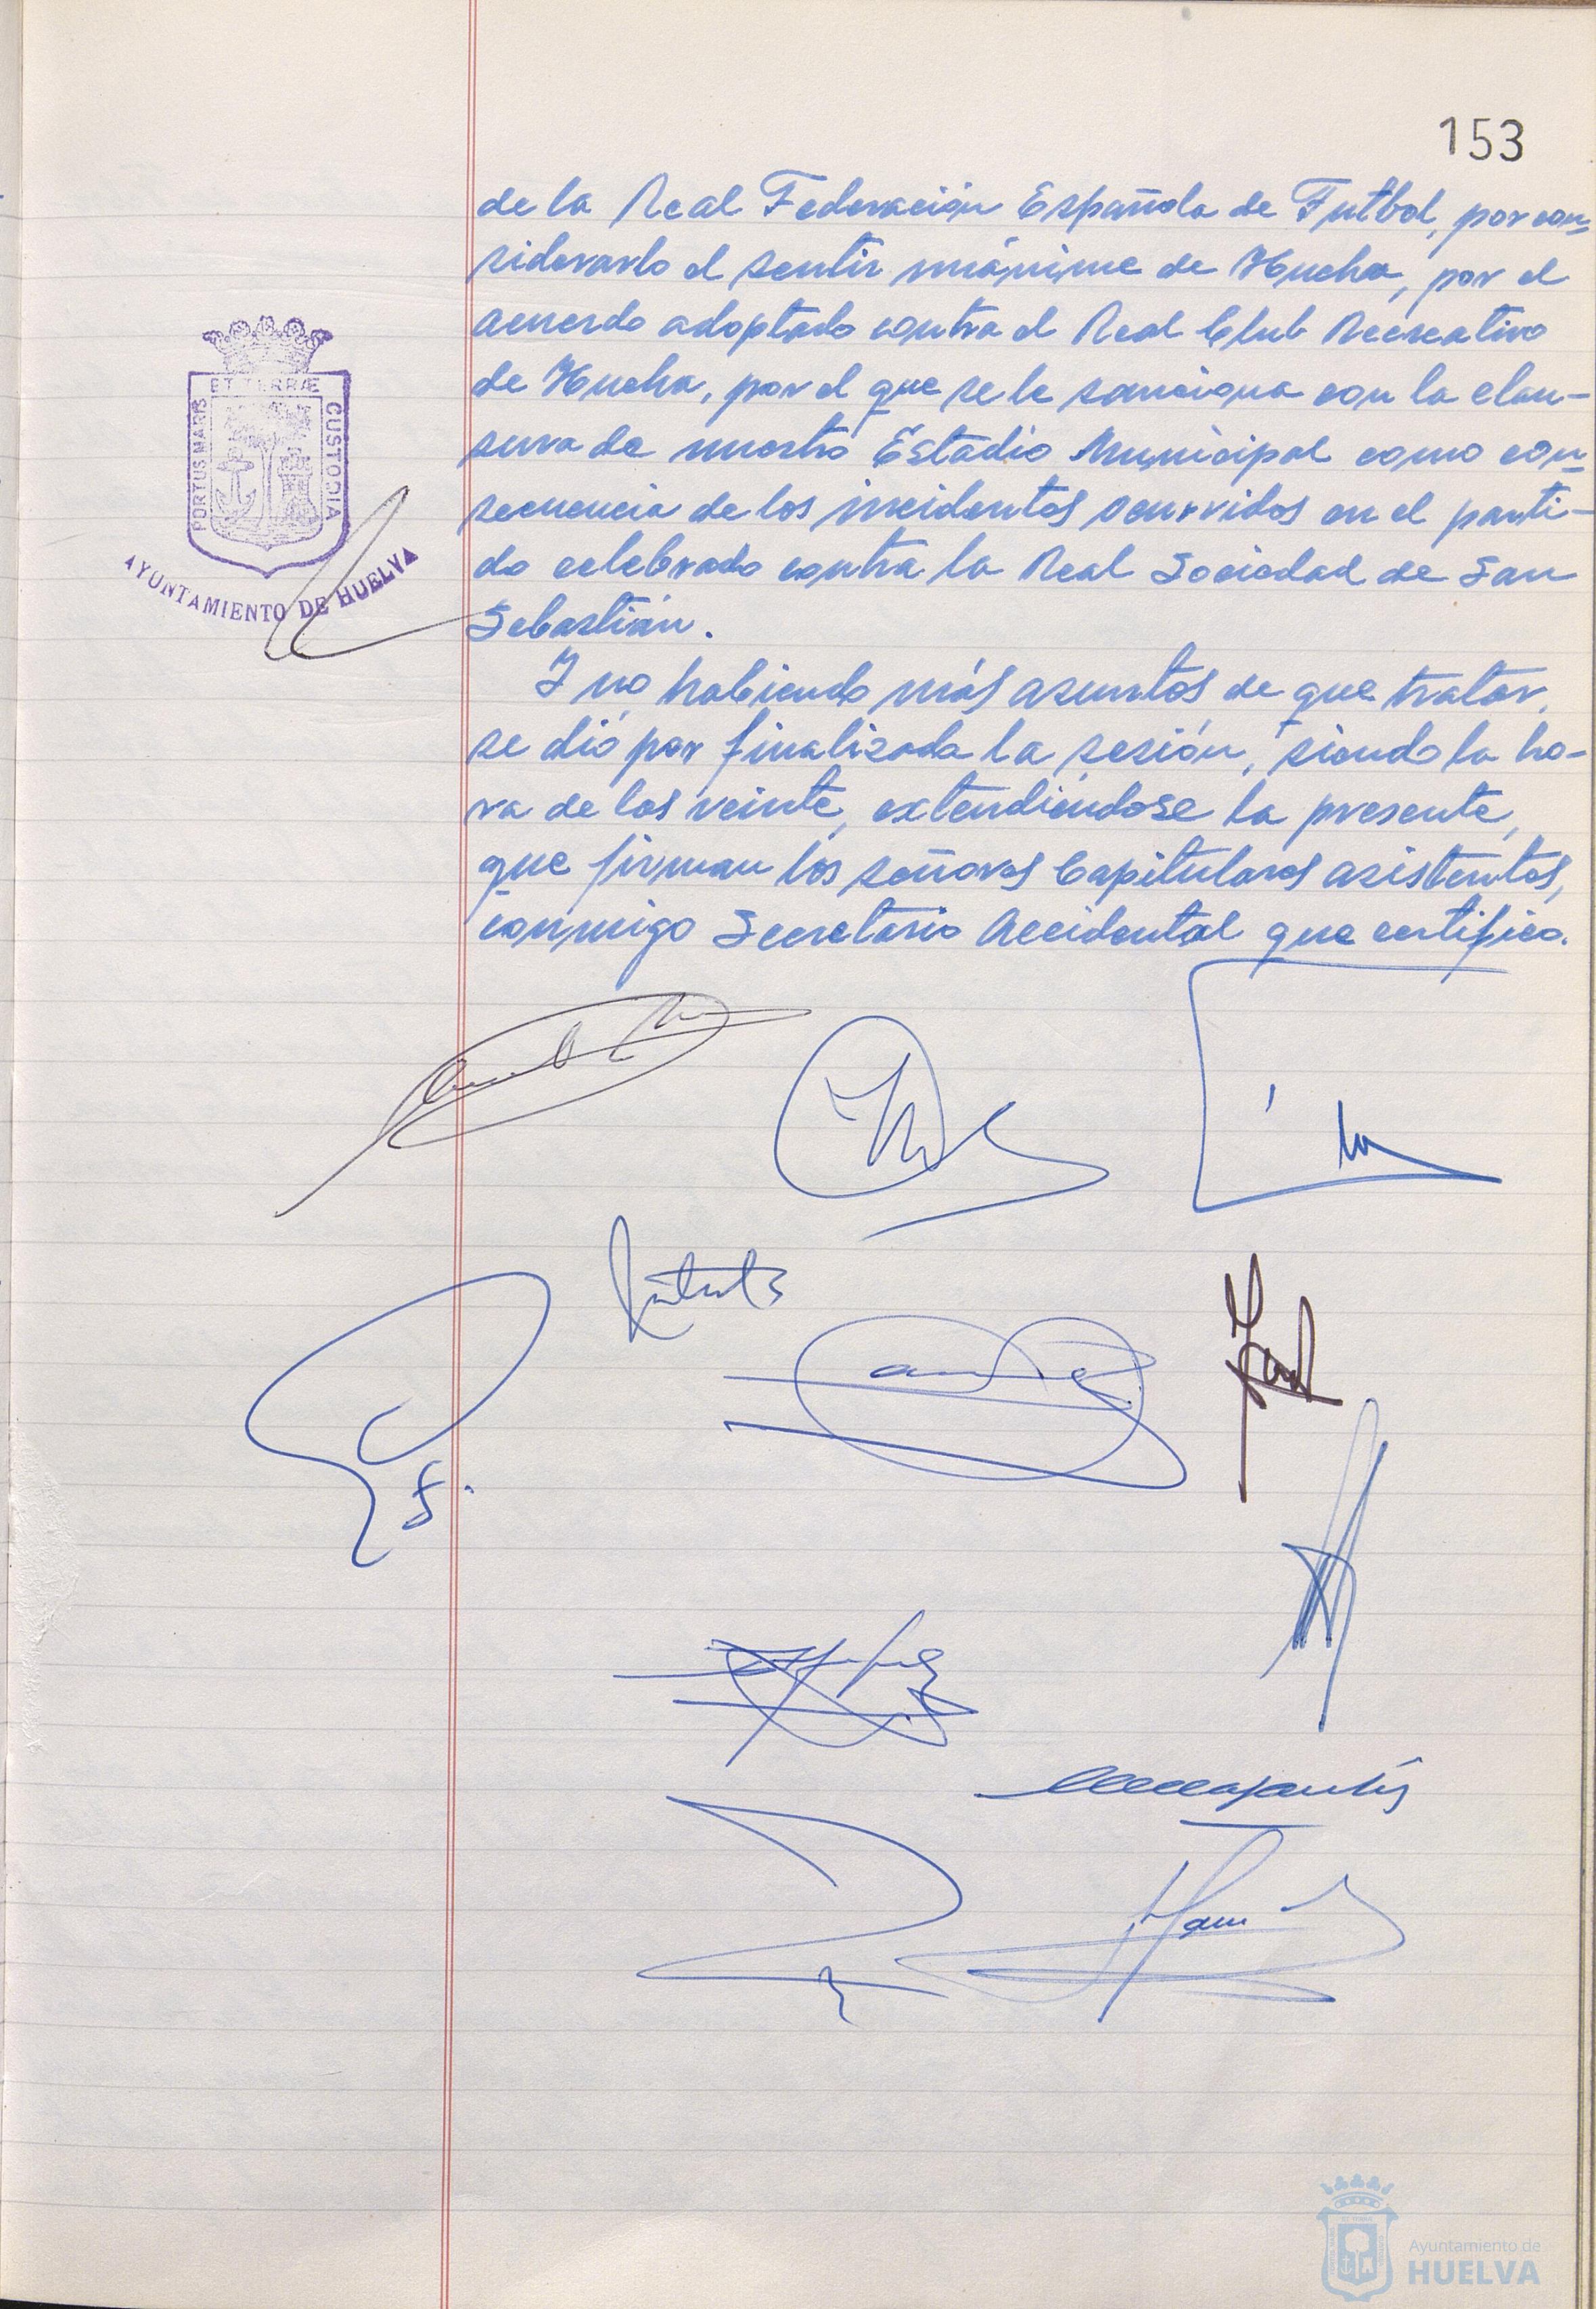 153
de la Real Federación Española de Futbol, por con=
siderarlo el sentir unánime de Huelva, por el
acuerdo adoptado contra el Real Club Recreativo
de Huelva, por el que se le sanciona con la clau-
sura de nuestro Estadio Municipal como con=
secuencia de los incidentes ocurridos en el parti-
do celebrado contra la Real Sociedad de San
Sebastián.
Y no habiendo más asuntos de que tratar,
se dió por finalizada la sesión, siendo la ho-
ra de las veinte, extendiéndose la presente,
que firman los señores Capitulares asistentes,
conmigo Secretario Accidental que certifico.
PORTUS MARIS
ET TERRÆ
CUSTODIA
AYUNTAMIENTO DE HUELVA
Ayuntamiento de
HUELVA